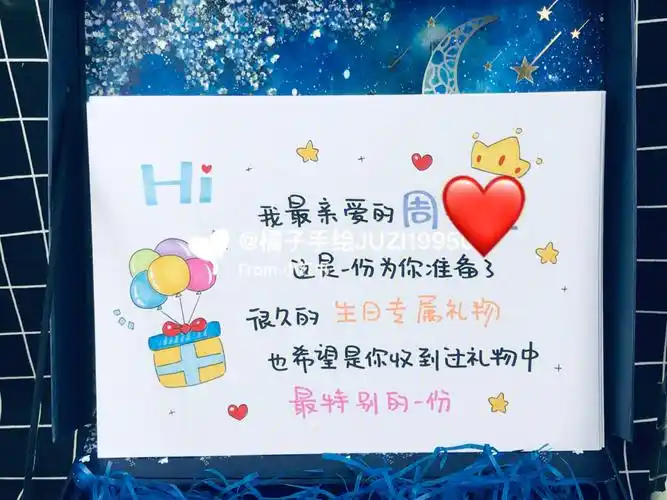 Hi
我最亲爱的 周
@橘子手绘JUZI1995
From
这是一份为你准备了
很久的 生日专属礼物
也希望是你收到过礼物中
最特别的一份